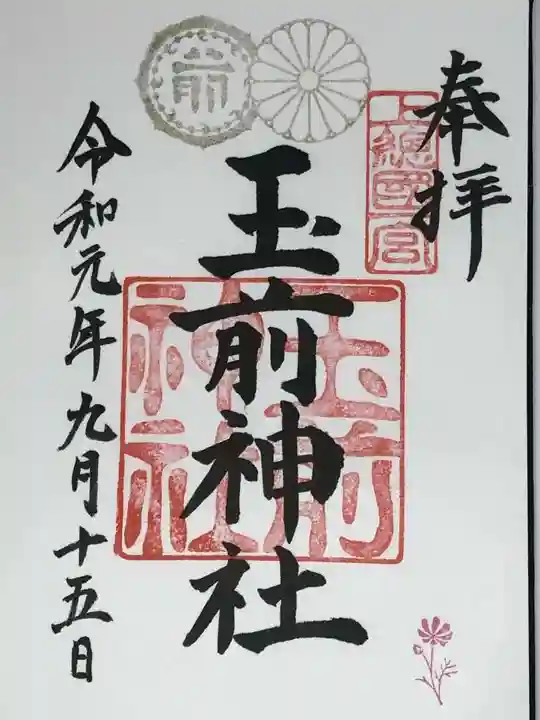 奉拝
上總國一宮
玉前神社
玉前神社
令和元年九月十五日